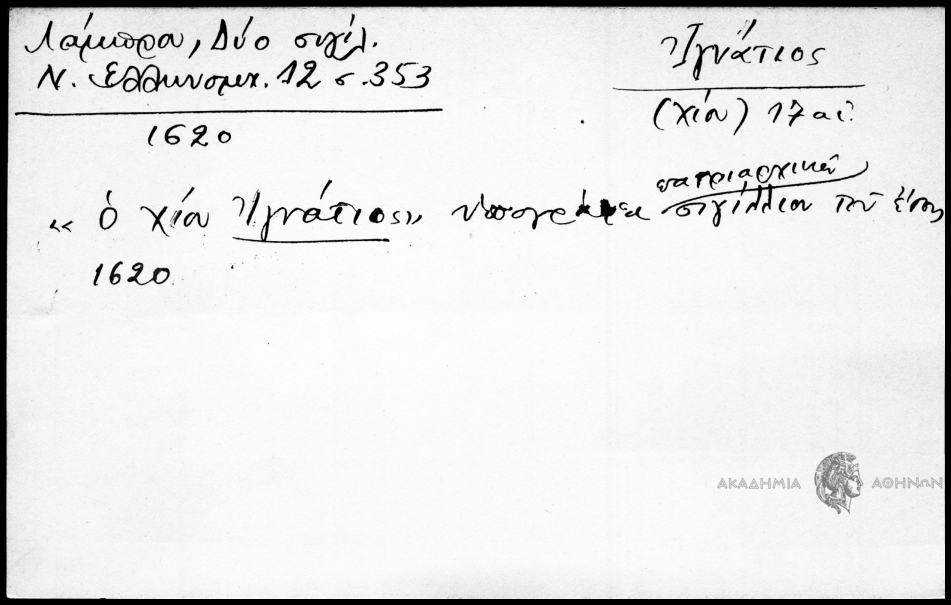 Λάμπρου, Δύο σιγίλ.
Ν. Ελληνομν. 12 σ. 353
1620
Ἰγνάτιος
(Χίου) 17 αἰ.
πατριαρχικὸν
« ὁ Χίου Ἰγνάτιος» ὑπογράφει σιγίλλιον τοῦ ἔτους
1620
ΑΚΑΔΗΜΙΑ ΑΘΗΝΩΝ